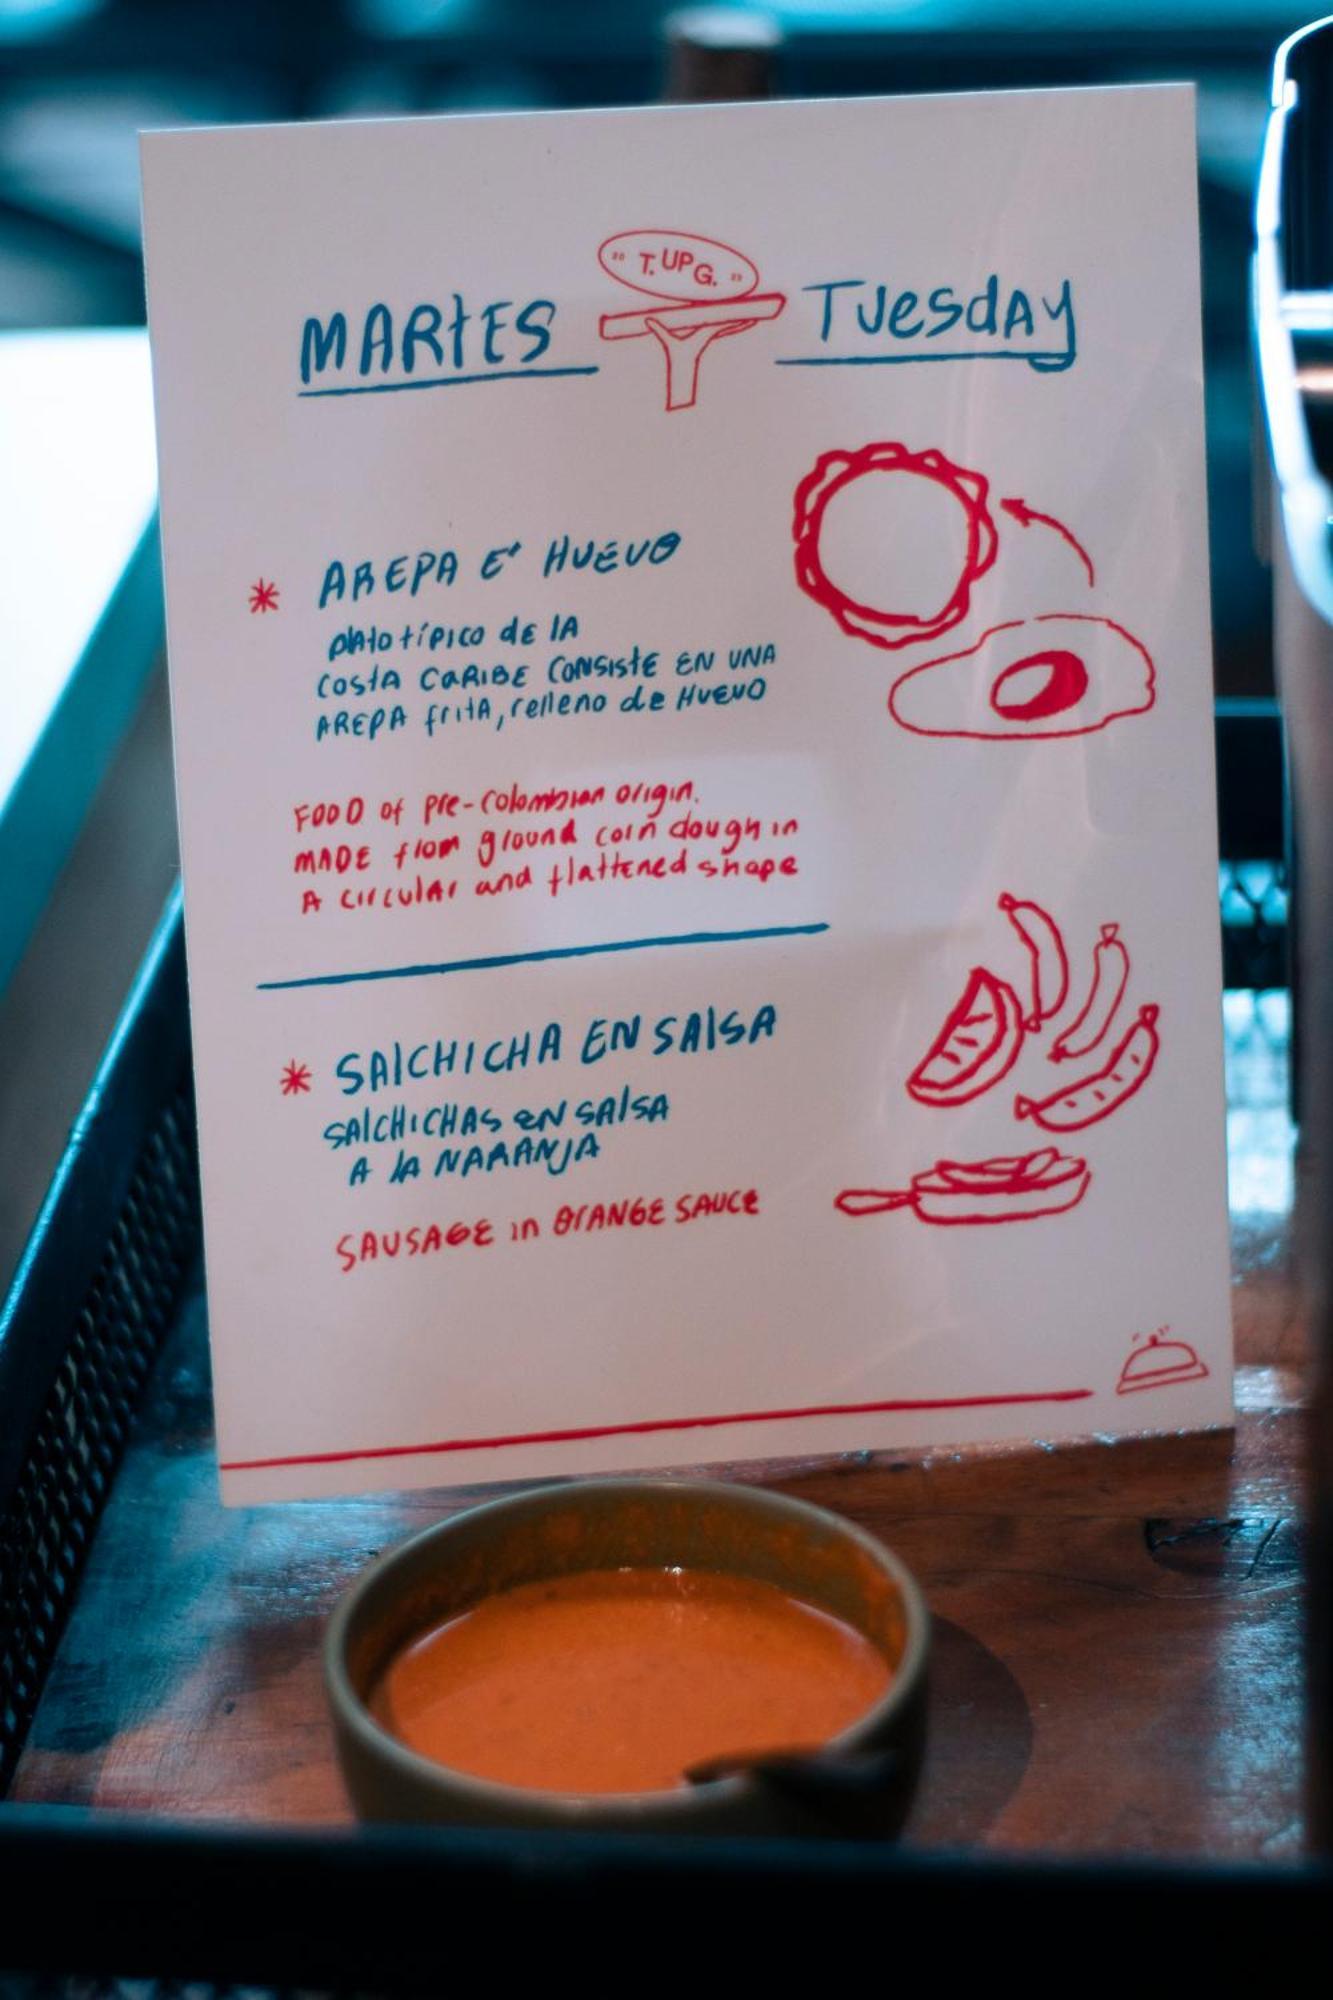 MARtES "T.UPG." Tuesday
* AREPA E' HUEVO
plAto típico de lA
CostA CARIBE CONSIStE EN UNA
AREPA fritA, relleno de HUEVO
FOOD of pre-colombian origin.
MADE from ground corn dough in
A circular and flattened shape
* SAlCHICHA EN SAlSA
SAlCHICHAS EN SAlSA
A lA NARANJA
SAUSAGE in OrANGE SAUCE